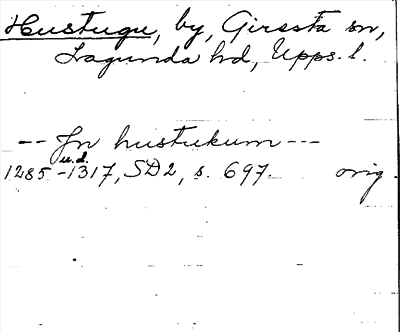 Hustugu, by, Giresta sn,
Lagunda hd, Upps. l.
-- Jn hustukum ---
u.d.
1285-1317, SD2, s. 697. orig.